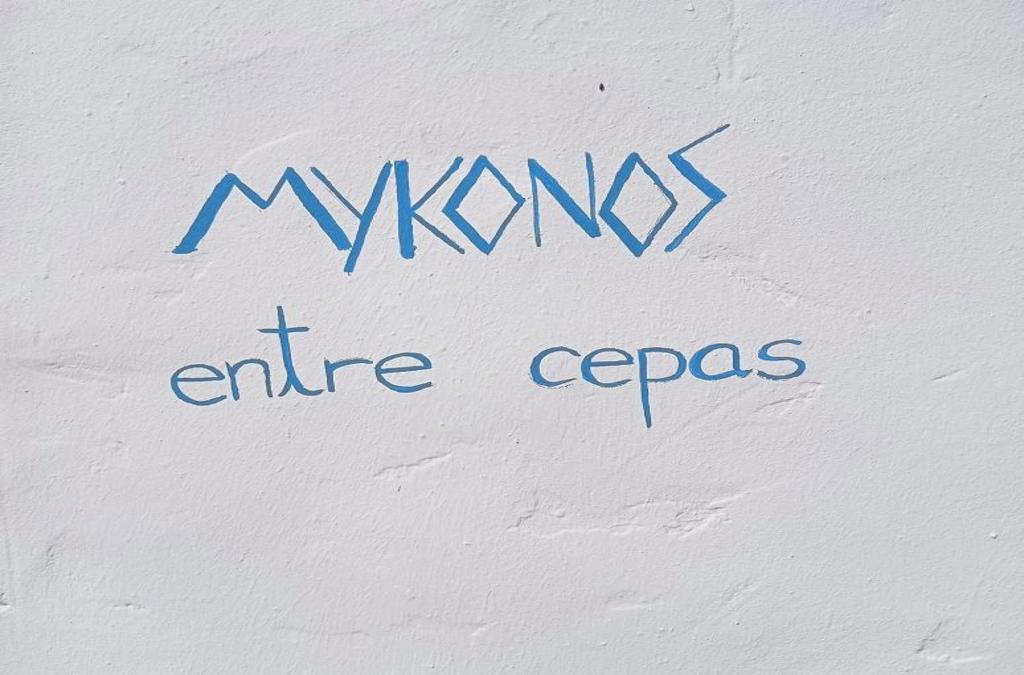 MYKONOS
entre cepas